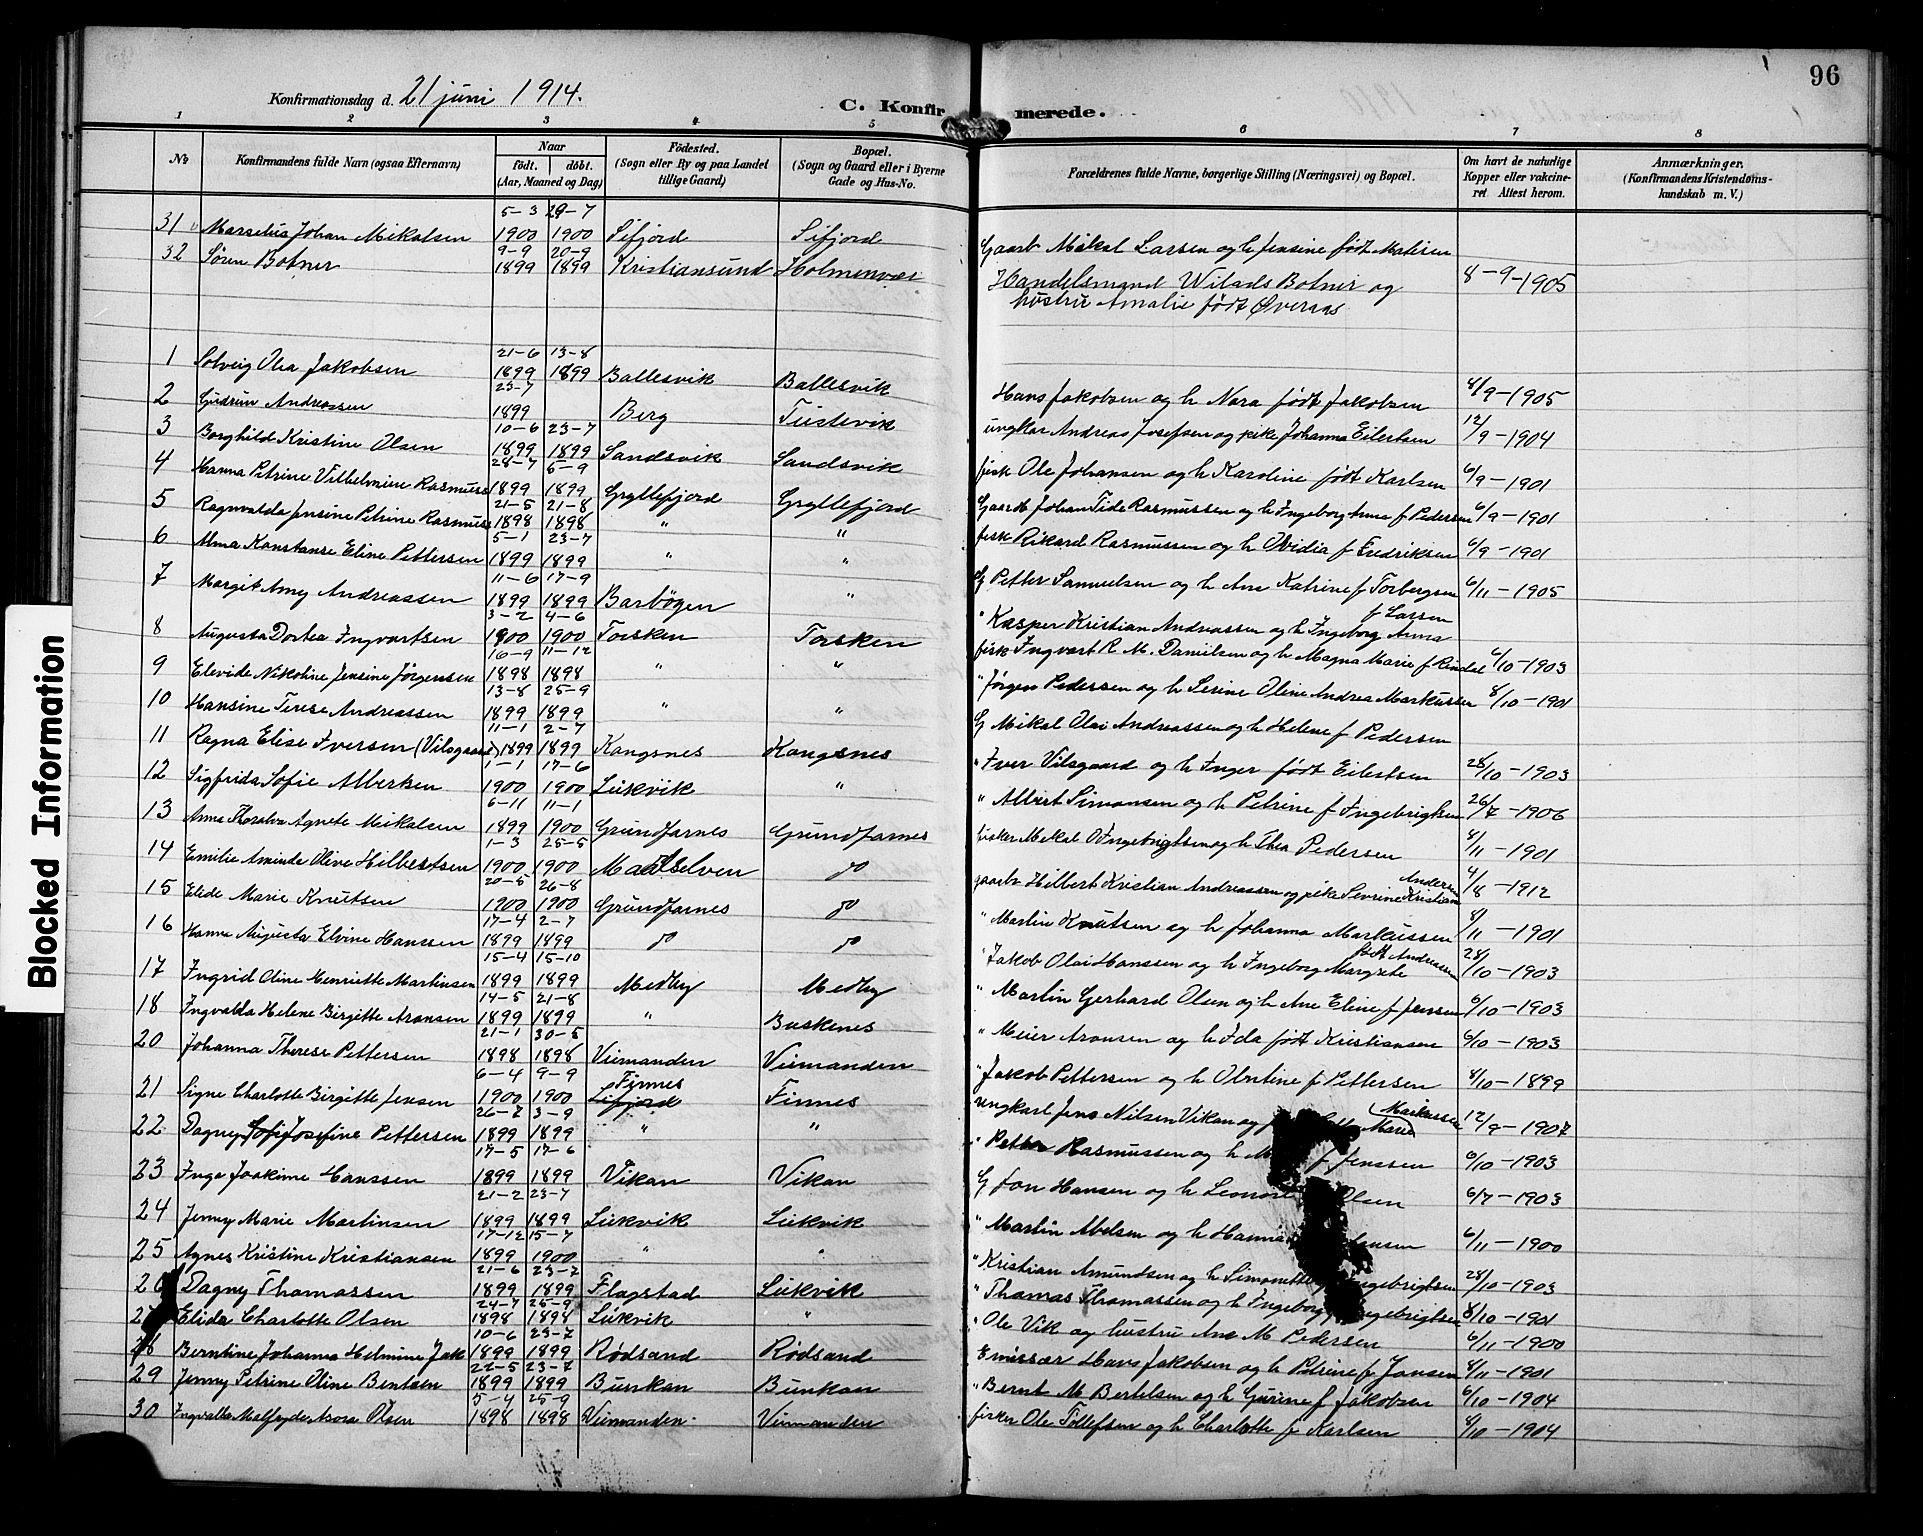 96
Konfirmationsdag d. 21 juni 1914.
C. Konfirmerede.
1 2 3 4 5 6 7 8
No
Konfirmandens fulde Navn (ogsaa Efternavn)
Naar
født. døbt.
(Aar, Maaned og Dag)
Fødested.
(Sogn eller By og paa Landet
tillige Gaard)
Bopæl.
(Sogn og Gaard eller i Byerne
Gade og Hus-No.
Forældrenes fulde Navne, borgerlige Stilling (Næringsvei) og Bopæl.
Om havt de naturlige
Kopper eller vakcine-
ret Attest herom.
Anmærkninger.
(Konfirmandens Kristendoms-
kundskab m. V.)
5-3 29-7
31 Marselius Johan Mikalsen 1900 1900 Sifjord Sifjord Gaarb Mikal Larsen og h Jensine født
9-9 20-9
32 Søren Botner 1899 1899 Kristiansund Holmenvær Handelsmand Botner og 8-9-1905
hustru Amalie født Øveraas
21-6 13-8
1 Solveig Olea Jakobsen 1899 1899 Ballesvik Ballesvik Hans Jakobsen og h Nora født Jakobsen 8/9-1905
23-7
2 Gudrun Andreassen 1899 Berg Tustevik ungkar Andreas Josefsen og pike Johanna Eilertsen 12/9-1904
10-6 23-7
3 Borghild Kristine Olsen 1899 1899 Sandsvik Sandsvik fisk Ole Johansen og h Karoline født Karlsen 6/9-1901
28-7 6-9
4 Hanna Petrine Vilhelmine Rasmuss 1899 1899 Gryllefjord Gryllefjord Gaarb Johan Tide Rasmussen og h Ingeborg Anne f Pedersen 6/9-1901
21-5 21-8
5 Ragnvalda Jensine Petrine Rasmuss 1898 1898 " " fisk Rikard Rasmussen og h Ovidia f Fredriksen 6/9-1901
5-1 23-7
6 Alma Konstanse Eline Pettersen 1899 1899 " " G Petter Samuelsen og h Ane Katrine f Torbergsen 6/11-1905
11-6 17-9
7 Margit Amy Andreassen 1899 1899 Barbøgen " " Kasper Kristian Andreassen og h Ingeborg Anna f Larsen
3-2 4-6
8 Augusta Dortea Ingvartsen 1900 1900 Torsken Torsken fisk Ingvart R. M. Danielsen og h Magna Marie f 6/10-1903
16-9 11-12
9 Elevide Nikoline Jensine Jørgensen 1898 1898 " " " Jørgen Pedersen og h Serine Oline Andrea Markussen 8/10-1901
13-8 25-9
10 Hansine Terese Andreassen 1899 1899 " " G Mikal Olai Andreassen og h Helene f Pedersen
11-1 2-7
11 Ragna Elise Iversen (Vilsgaard) 1899 1899 Kongsnes Kongsnes " Iver Vilsgaard og h Inger født Eilertsen 28/10-1903
1-1 17-6
12 Sigfrida Sofie Albertsen 1900 1900 Lukvik " " Albert Simonsen og h Petrine f Ingebrigtsen 26/7-1906
6-11 11-1
13 Anna Thoralva Agnete Mikalsen 1899 1900 Grundfarnes Grundfarnes fisker Mekal O Ingebrigtsen og h Thea Pedersen 8/11-1901
1-3 25-5
14 Emilie Aminda Olive Hilbertsen 1900 1900 Maalselven do gaarb Hilbert Kristian Andreassen og pike Sevrine Kristian Anders 4/8-1912
20-5 26-8
15 Elide Marie Knutsen 1900 1900 Grundfarnes do " Martin Knutsen og h Johanna Markussen 8/11-1901
17-4 2-7
16 Hanna Augusta Elvine Hanssen 1899 1899 do do " Jakob Olai Hanssen og h Ingeborg Margrete født Andreasen 28/10-1903
15-4 15-10
17 Ingrid Oline Henriette Martinsen 1899 1899 Medby Medby " Martin Gerhard Olsen og h Ane Eline f Jensen 6/10-1903
14-5 21-8
18 Ingvalda Helene Birgitte Aronsen 1899 1899 " Buskenes " Meier Aronsen og h Ida født Kristiansen 6/10-1903
21-1 30-5
20 Johanna Therese Pettersen 1898 1898 Veimanden Veimanden " Jakob Pettersen og h Olentine f Pettersen 8/10-1899
6-4 9-9 Finnes
21 Signe Charlotte Birgitte Jensen 1900 1900 Sifjord Finnes ungkarl Jens Nilsen Vikan og Marie Markussen 12/9-1907
26-7 3-9
22 Dagny Sofi Josefine Pettersen 1899 1899 " " " Petter Rasmussen og h f Jenssen 6/10-1903
17-5 17-6
23 Inga Joakime Hanssen 1899 1899 Vikan Vikan G Jon Hansen og h Leonore Olsen 6/7-1903
21-2 23-7
24 Jenny Marie Martinsen 1899 1899 Lukvik Lukvik " Martin Abelsen og h Hanna 6/11-1900
17-12 15-7
25 Agnes Kristine Kristiansen 1899 1900 " " " Kristian Amundsen og h Simonette Ingebrigtsen 28/10-1903
21-6 23-2
26 Dagny Thomassen 1899 1899 Flagstad Lukvik " Thomas Thomassen og h Ingeborg Ingebrigtsen 8/10-1901
24-7 25-9
27 Elida Charlotte Olsen 1898 1898 Lukvik " " Ole Vik og hustru Ane M Pedersen 6/11-1900
10-6 23-7
28 Berntine Johanna Helmine Jak 1899 1899 Rødsand Rødsand Emissær Hans Jakobsen og h Petrine f Jansen 8/11-1901
22-5 23-7
29 Jenny Petrine Oline Bentsen 1899 1899 Bunkan Bunkan " Bernt M Bertelsen og h Gurine f Jakobsen 6/10-1904
5-4 25-9
30 Ingvalda Malfryde Aasora Olsen 1898 1898 Veimanden Veimanden fisker Ole Tollefsen og h Charlotte f Karlsen 8/10-1904
Blocked Information